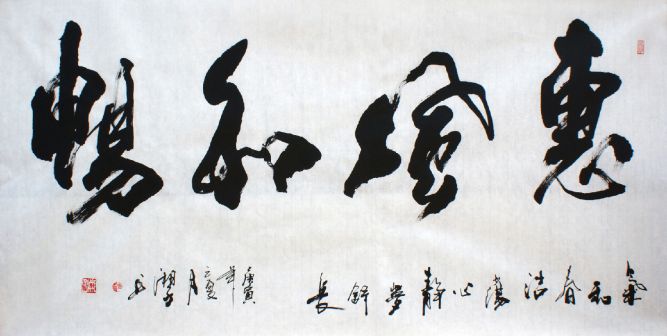 惠風和暢
氣和春浩蕩心靜夢舒長
庚寅年之夏月